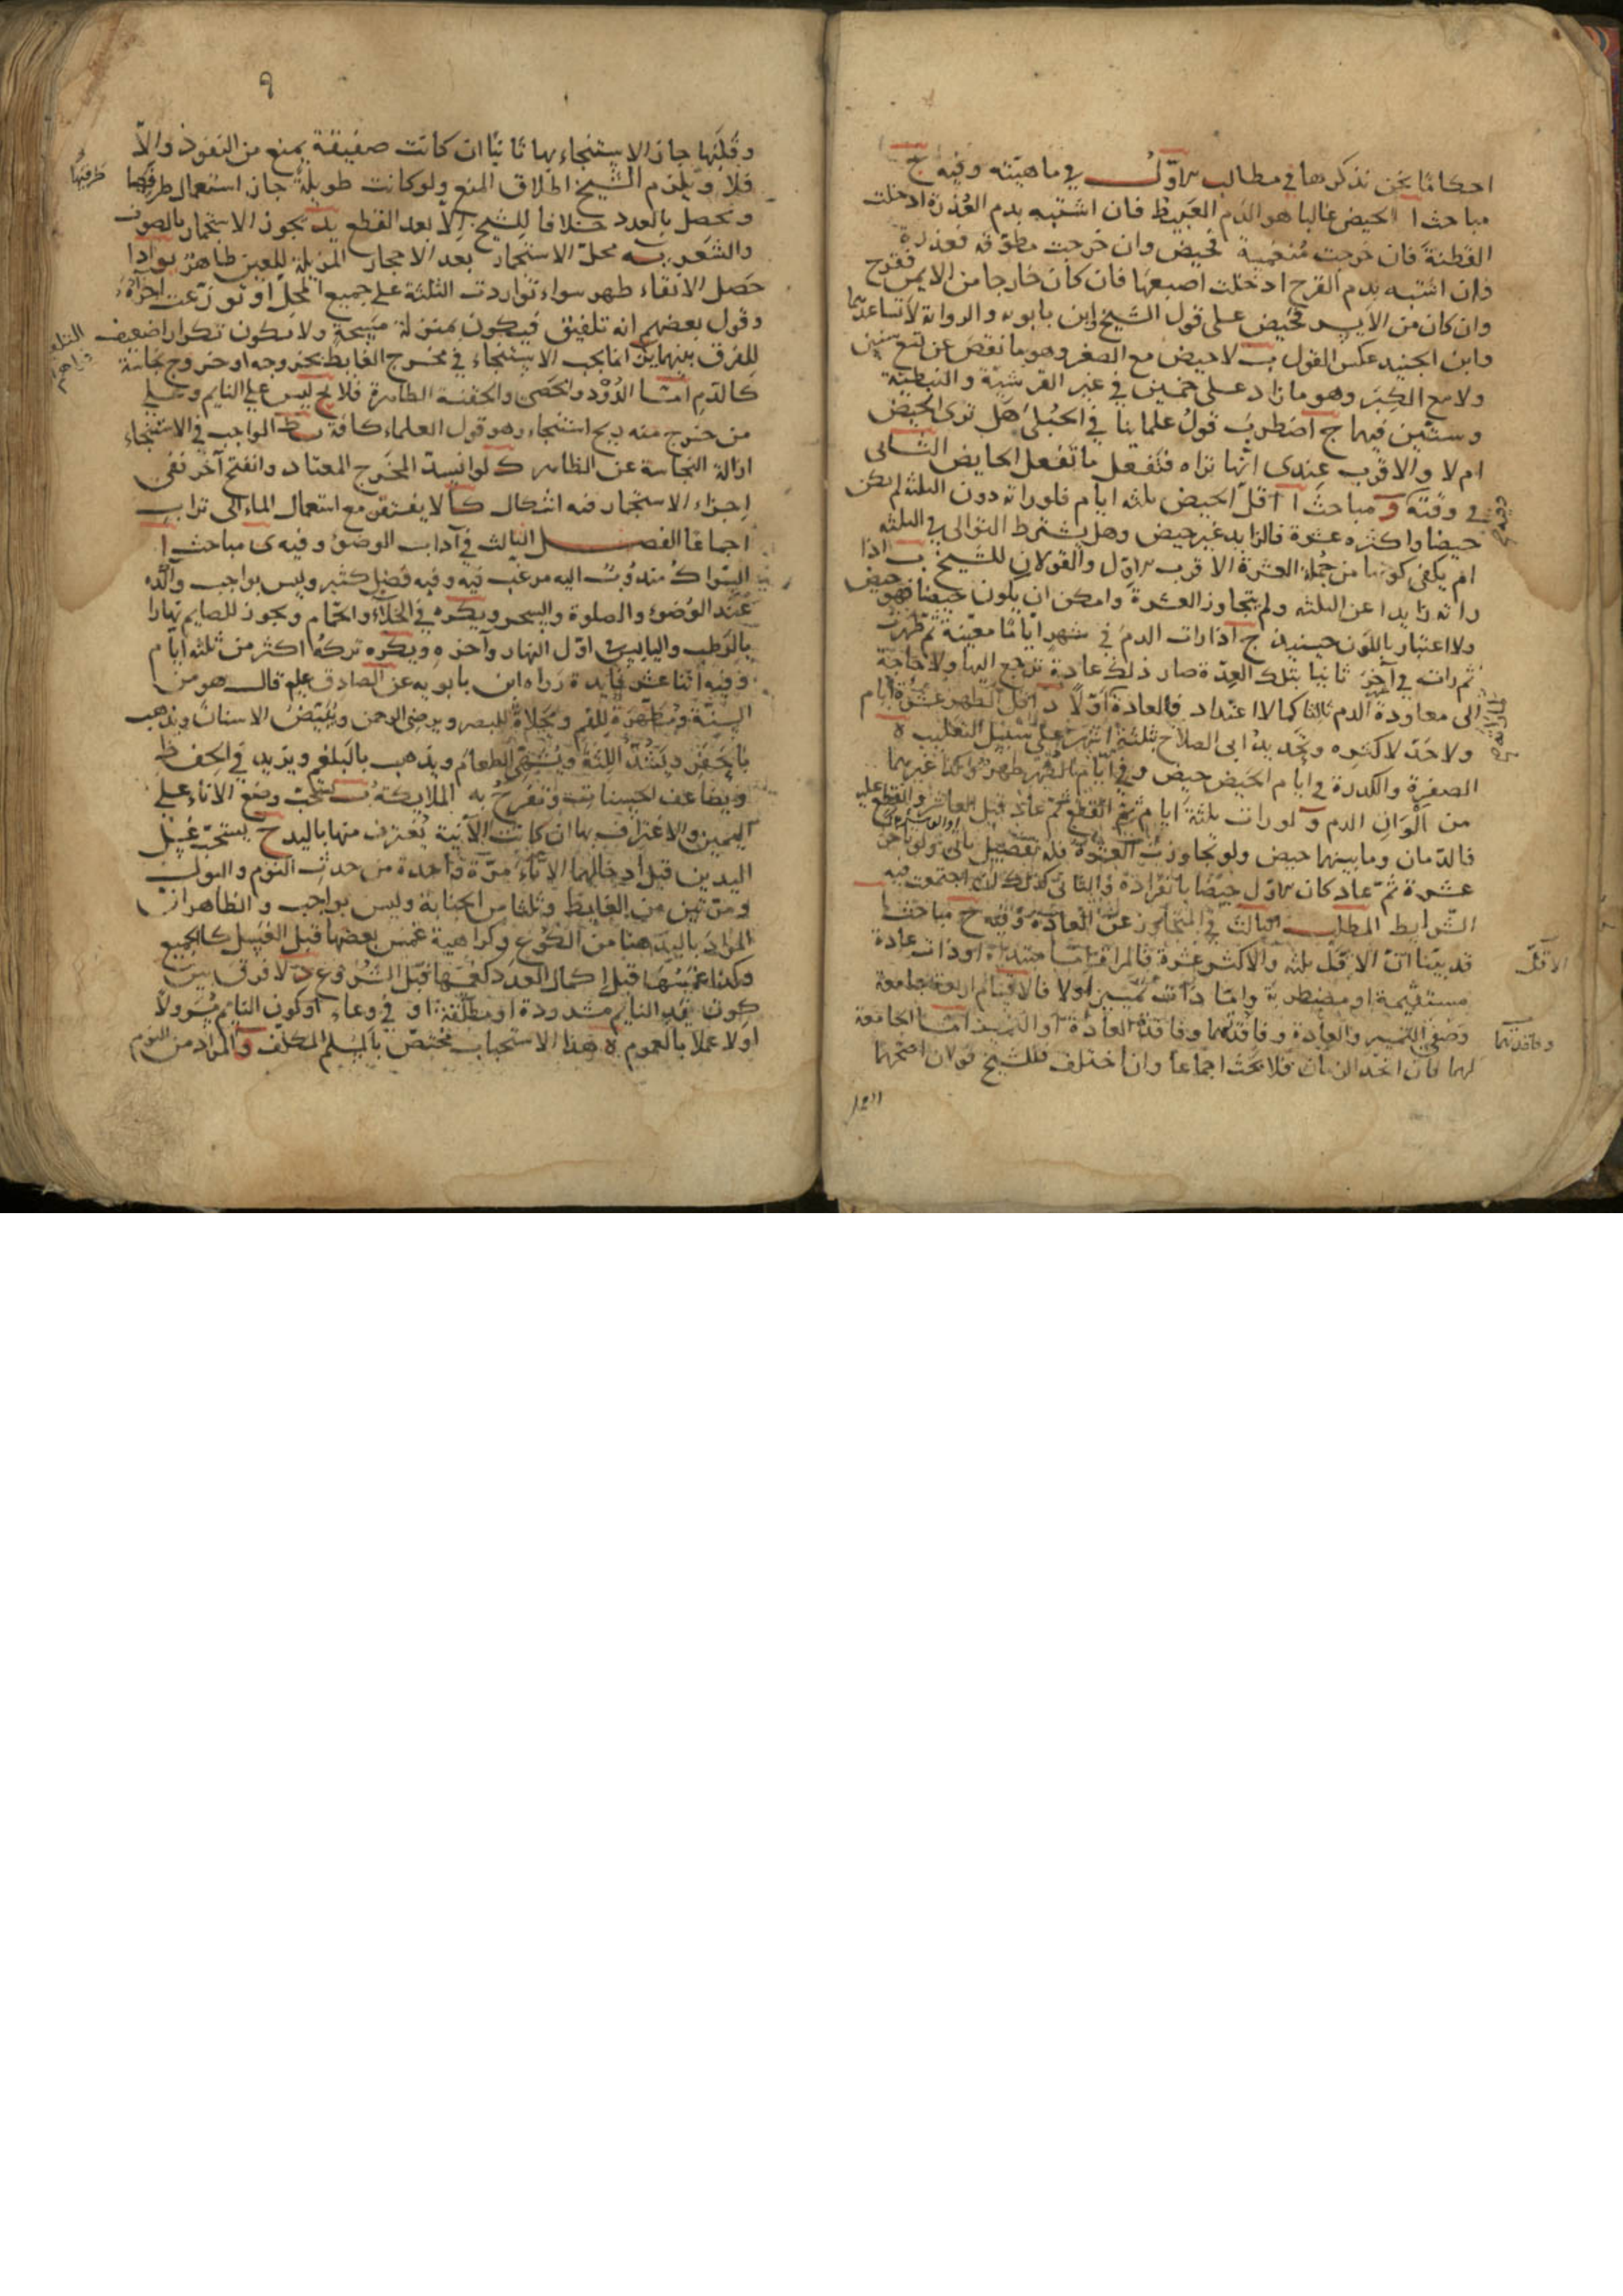 احكامًا نحن نذكرها في مطالب الاول في ماهيته وفيه ج
مباحث ا الحيض غالبا هو الدم الغبيط فان اشتبه بدم العذرة ادخلت
القطنة فان خرجت منغمسة فحيض وان خرجت مطوقة فعذرة
فان اشتبه بدم القرح ادخلت اصبعها فان كان خارجا من الايمن فقرح
وان كان من الايسر فحيض على قول الشيخ وابن بابويه والرواية لا تساعدهما
وابن الجنيد عكس القول ب لا حيض مع الصغر وهو ما نقص عن تسع سنين
ولا مع الكبر وهو ما زاد على خمسين في غير القرشية والنبطية
وستين فيهما ج اضطرب قول علمائنا في الحبلى هل ترى الحيض
ام لا والاقرب عندي انها تراه فتفعل ما تفعل الحايض الثاني
في وقته و مباحث ا اقل الحيض ثلثه ايام فلو راته دون الثلثه لم يكن
حيضا واكثره عشرة فالزايد غير حيض وهل يشترط التوالي في الثلثه
ام يكفي كونها من جملة العشرة الاقرب الاول والقولان للشيخ ب اذا
راته زايدا عن الثلثه ولم يتجاوز العشرة وامكن ان يكون حيضا فهو حيض
ولا اعتبار باللون حينئذ ج اذا رات الدم في شهر اياما معينة ثم طهرت
ثم راته في آخر ثانيا بتلك العدة صار ذلك عادة ترجع اليها ولا حاجة
الى معاودة الدم ثالثا كما لا اعتداد فالعادة اولا د اقل الطهر عشرة ايام
ولا حد لاكثره وتحديد ابي الصلاح بثلثة اشهر على سبيل التغليب ه
الصفرة والكدرة في ايام الحيض حيض وفي ايام الطهر طهر وكذا غيرهما
من الوان الدم و لو رات ثلثة ايام ثم انقطع ثم عاد قبل العاشر وانقطع عليه
فالدمان وما بينهما حيض ولو تجاوزت العشرة فله تفصيل ياتي ولو تاخر
عشرة ثم عاد كان الاول حيضا بانفراده والثاني كذلك ان اجتمعت فيه
الشرايط المطلب الثالث في المتجاوز عن العادة وفيه ح مباحث ا
قد بينا ان الاقل ثلثه والاكثر عشرة فالمراة اما مبتداة او ذات عادة
الاقل
مستقيمة او مضطربة واما ذات تمييز او لا فالاقسام اربعة جامعة
وصفي التمييز والعادة وفاقدتهما وفاقدة العادة او التمييز اما الجامعة
وفاقدتهما
لهما فان اتحد الزمان فلا بحث اجماعا وان اختلف فللشيخ قولان اصحهما
٩
وقلبها جاز الاستنجاء بها ثانيا ان كانت صفيقة يمنع من النفوذ والا
فلا ويلزم الشيخ اطلاق المنع ولو كانت طويلة جاز استعمال طرفيها
طرفيها
وتحصل بالعدد خلافا للشيخ الا بعد القطع يد يجوز الاستجمار بالصوف
والشعر يه محل الاستجمار بعد الاحجار المزيلة للعين طاهر يو اذا
حصل الانقاء طهر سواء تواردت الثلثة على جميع المحل او توزعت اجزاءه
وقول بعضهم انه تلفيق فيكون بمنزلة مسحة ولا يكون تكرارا ضعيف
للفرق بينهما يز انما يجب الاستنجاء في مخرج الغايط بخروجه او خروج نجاسة
كالدم اما الدود والحصى والحقنة الطاهرة فلا يح ليس على النايم وعلى
من خرج منه ريح استنجاء وهو قول العلماء كافة يط الواجب في الاستنجاء
ازالة النجاسة عن الظاهر ك لو انسد المخرج المعتاد وانفتح آخر ففي
اجزاء الاستجمار فيه اشكال كا لا يفتقر مع استعمال الماء الى تراب
اجماعا الفصل الثالث في آداب الوضوء وفيه ى مباحث ا
السواك مندوب اليه مرغب فيه وفيه فضل كثير وليس بواجب وآكده
عند الوضوء والصلوة والسحر ويكره في الخلاء والحمام ويجوز للصايم نهارا
بالرطب واليابس اول النهار وآخره ويكره تركه اكثر من ثلثة ايام
وفيه اثنا عشر فايدة رواه ابن بابويه عن الصادق علم قال هو من
السنة ومطهرة للفم ومجلاة للبصر ويرضى الرحمن ويبيض الاسنان ويذهب
بالحفر ويشد اللثة ويشهى الطعام ويذهب بالبلغم ويزيد في الحفظ
ويضاعف الحسنات وتفرح به الملايكة ب يستحب وضع الاناء على
اليمين والاغتراف بها ان كانت الآنية يغترف منها باليد ج يستحب غسل
اليدين قبل ادخالهما الاناء مرة واحدة من حدث النوم والبول
ومرتين من الغايط وثلثا من الجنابة وليس بواجب والظاهر ان
المراد باليد هنا من الكوع وكراهية غمس بعضها قبل الغسل كالجميع
وكذا غمسها قبل اكمال العدد كغمسها قبل الشروع د لا فرق بين
كون يد النايم مشدودة او مطلقة او في وعاء او كون النايم مسرولا
اولا عملا بالعموم ه هذا الاستحباب مختص بالمسلم المكلف و المراد من النوم